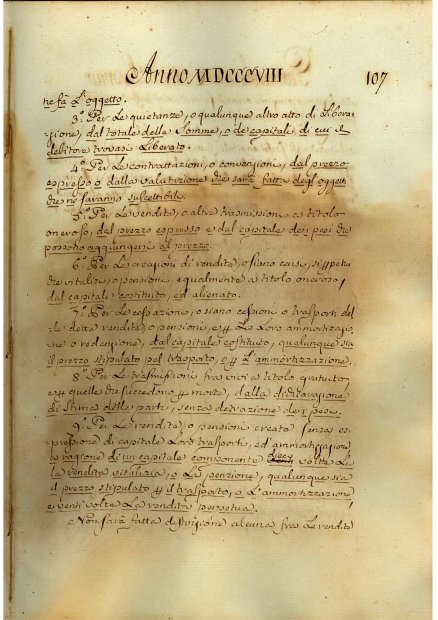 Anno MDCCCVIII
107
ne fà L'oggetto.
3.º Per Le quietanze, o qualunque altro atto di Libera-
zione, dal totale delle Somme, o de capitali di cui il
debitore trovasi Liberato.
4.º Per Le contrattazioni, o convenzioni, dal prezzo
espresso o dalla valutazione che sarà fatta degl'oggetti
che ne saranno suscettibili.
5.º Per Le vendite, o altre trasmissioni a titolo
oneroso, dal prezzo espresso e dal capitale dei pesi che
possono aggiungersi al prezzo.
6.º Per Le creazioni di rendite, o siano censi, sì perpetui
che vitalizi, o pensioni, egualmente a titolo oneroso,
dal capitale costituito, ed alienato.
7.º Per Le cessazione, o siano cessioni o trasporti del-
le dette rendite, o pensioni, e per Le Loro ammortizazio-
ne o redenzione, dal capitale costituto, qualunque sia
il prezzo stipulato pel trasporto, o per L'ammortizzazione.
8.º Per Le trasmissioni fra vivi a titolo gratuito
e per quelle che succedono per morte, dalla dichiarazione
di stima delle parti, senza detrazione dei pesi.
9.º Per Le rendite, o pensioni create senza es-
pressione di capitale Loro trasporti, ed ammortizzazioni
a ragione di un capitale componente dieci volte La
rendita vitalizia, o La penzione, qualunque sia
il prezzo stipulato per il trasporto, o L'ammortizzazione
e venti volte La rendita perpetua.
Non sarà fatta distinzione alcuna fra Le rendite